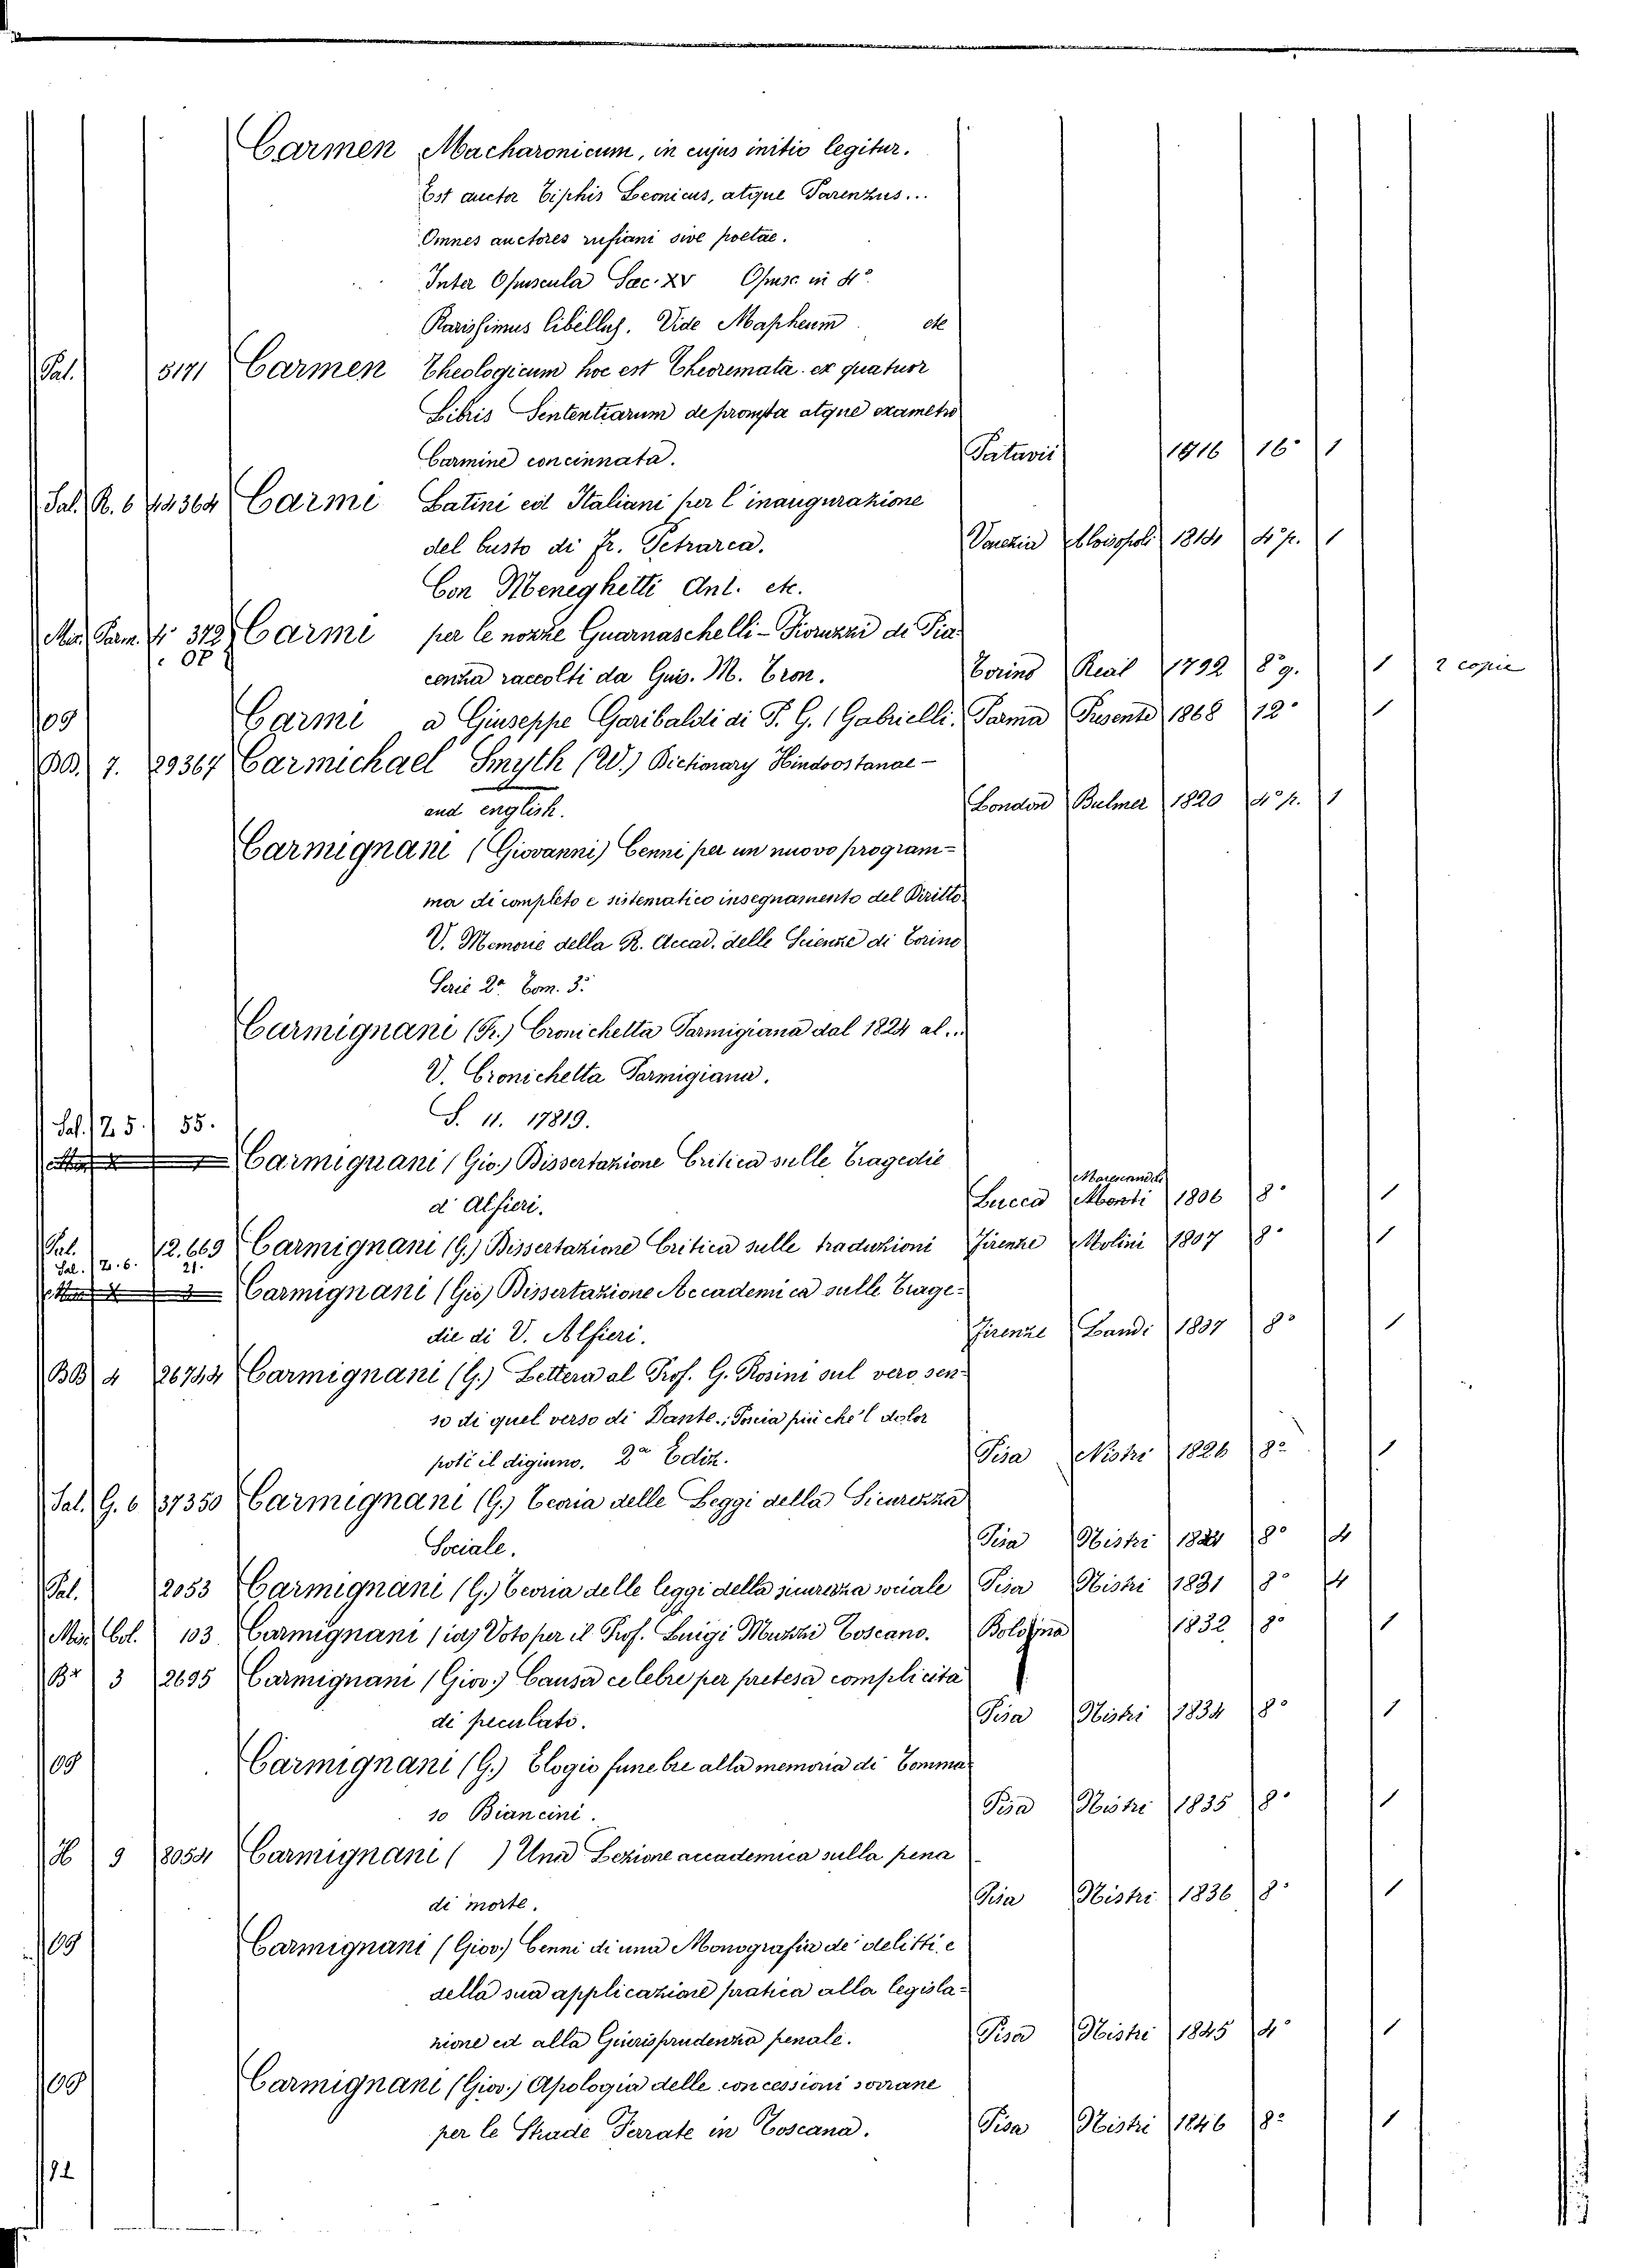 Carmen Macharonicum, in cujus initio legitur.
Est auctor Tiphis Leonicus, atque Parenzus...
Omnes auctores rufiani sive poetae.
Inter Opuscula Saec. XV Opusc. in 4°.
Rarissimus libellus. Vide Mapheum etc
Pal. 5171 Carmen Theologicum hoc est Theoremata ex quatuor
Libris Sententiarum deprompta atque exametro
Carmine concinnata. Patavii 1916 16° 1
Sal. R. 6 44364 Carmi Latini ed Italiani per l'inaugurazione
del busto di Fr. Petrarca. Venezia Alvisopoli 1814 4° p. 1
Con Meneghetti Ant. etc.
Misc. Parm. 4° 312 Carmi per le nozze Guarnaschelli-Fioruzzi di Pia-
OP cenza raccolti da Guis. M. Tron. Torino Real 1792 8° g. 1 2 copie
109 Carmi a Giuseppe Garibaldi di P. G. (Gabrielli. Parma Presente 1868 12° 1
BB. 7. 29367 Carmichael Smyth (W.) Dictionary Hindoostanae-
and english. London Bulmer 1820 4° p. 1
Carmignani (Giovanni) Cenni per un nuovo program-
ma di completo e sistematico insegnamento del Diritto.
V. Memorie della R. Accad. delle Scienze di Torino
Serie 2a Tom. 3.
Carmignani (Fr.) Cronichetta Parmigiana dal 1824 al...
V. Cronichetta Parmigiana.
S. 11. 17819.
Sal. Z. 5. 55.
Carmignani (Gio.) Dissertazione Critica sulle Tragedie
d'Alfieri. Lucca 1806 8° 1
Pal. 12.669 Carmignani (G.) Dissertazione Critica sulle traduzioni Firenze Molini 1807 8° 1
Sal. Z. 6. 21.
Carmignani (Gio) Dissertazione Accademica sulle Trage-
die di V. Alfieri. Firenze Landi 1807 8° 1
BB 4 26744 Carmignani (G.) Lettera al Prof. G. Rosini sul vero sen-
so di quel verso di Dante: Poscia più che'l dolor
potè il digiuno. 2a Ediz. Pisa Nistri 1826 8° 1
Sal. G. 6 37350 Carmignani (G.) Teoria delle Leggi della Sicurezza
Sociale. Pisa Nistri 8° 4
Pal. 2053 Carmignani (G.) Teoria delle leggi della sicurezza sociale Pisa Nistri 1831 8° 4
Misc. Col. 103 Carmignani (id) Voto per il Prof. Luigi Muzzi Toscano. Bologna 1832 8° 1
Br 3 2695 Carmignani (Giov.) Causa celebre per pretesa complicità
di peculato. Pisa Nistri 1834 8° 1
109 Carmignani (G.) Elogio funebre alla memoria di Tomma-
so Biancini. Pisa Nistri 1835 8° 1
H 9 8054 Carmignani ( ) Una Lezione accademica sulla pena
di morte. Pisa Nistri 1836 8° 1
109 Carmignani (Giov.) Cenni di una Monografia de' delitti e
della sua applicazione pratica alla legisla-
zione ed alla Giurisprudenza penale. Pisa Nistri 1845 4° 1
109 Carmignani (Giov.) Apologia delle concessioni sovrane
per le Strade Ferrate in Toscana. Pisa Nistri 1846 8° 1